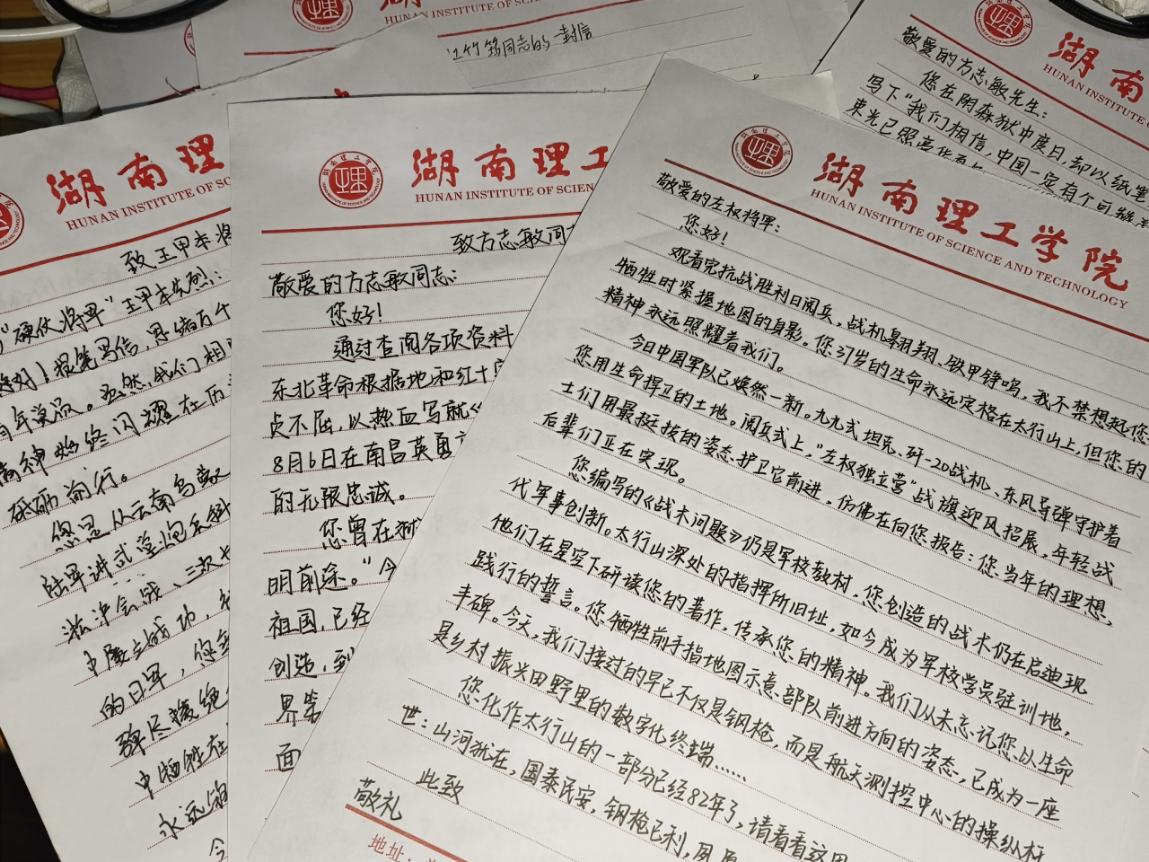 HUNAN INSTITUTE OF SC
江竹筠同志的一封信
湖南理
HUNAN INSTITUTE OF SC
致王甲本将
"硬仗将军"王甲本先烈:
您好!提笔写信,思绪万千
百年岁月。虽然,我们相
精神始终闪耀在历
砥砺前行。
您是从云南
陆军讲武堂炮兵科
淞沪会战、三次
中屡立战功,
的日军,您
弹尽援绝
中牺牲在
永远
今
湖南理工
HUNAN INSTITUTE OF SCIEN
致方志敏同
敬爱的方志敏同志:
您好!
通过查阅各项资料
东北革命根据地和红十
贞不屈,以热血写就《
8月6日在南昌英勇
的无限忠诚。
您曾在狱
明前途。"今
祖国,已经
创造,到
界第
面
湖南理工学院
HUNAN INSTITUTE OF SCIENCE AND TECHNOLOGY
敬爱的左权将军:
您好!
观看完抗战胜利日阅兵,战机翱翔,铁甲铮鸣,我不禁想起您
牺牲时紧握地图的身影。您37岁的生命永远定格在太行山上,但您的
精神永远照耀着我们。
今日中国军队已焕然一新。九九式坦克、歼-20战机、东风导弹守护着
您用生命捍卫的土地。阅兵式上,"左权独立营"战旗迎风招展,年轻战
士们用最挺拔的姿态护卫它前进,仿佛在向您报告:您当年的理想,
后辈们正在实现。
您编写的《战术问题》仍是军校教材,您创造的战术仍在启迪现
代军事创新。太行山深处的指挥所旧址,如今成为军校学员驻训地,
他们在星空下研读您的著作,传承您的精神。我们从未忘记您以生命
践行的誓言。您牺牲前手指地图示意部队前进方向的姿态,已成为一座
丰碑。今天,我们接过的早已不仅是钢枪,而是航天测控中心的操纵杆
是乡村振兴田野里的数字化终端……
您化作太行山的一部分已经82年了,请看看这
世:山河犹在,国泰民安,钢枪已利,
此致
敬礼
地址:
湖南
HUNAN INSTITUTE
敬爱的方志敏先生:
您在阴森狱中度日,却以纸笔
写下"我们相信,中国一定有个可
束光已照亮华夏